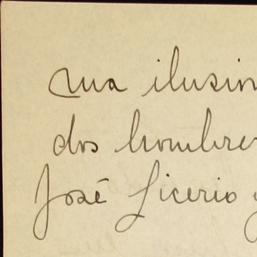 una ilusion
dos hombres
José Licerio y